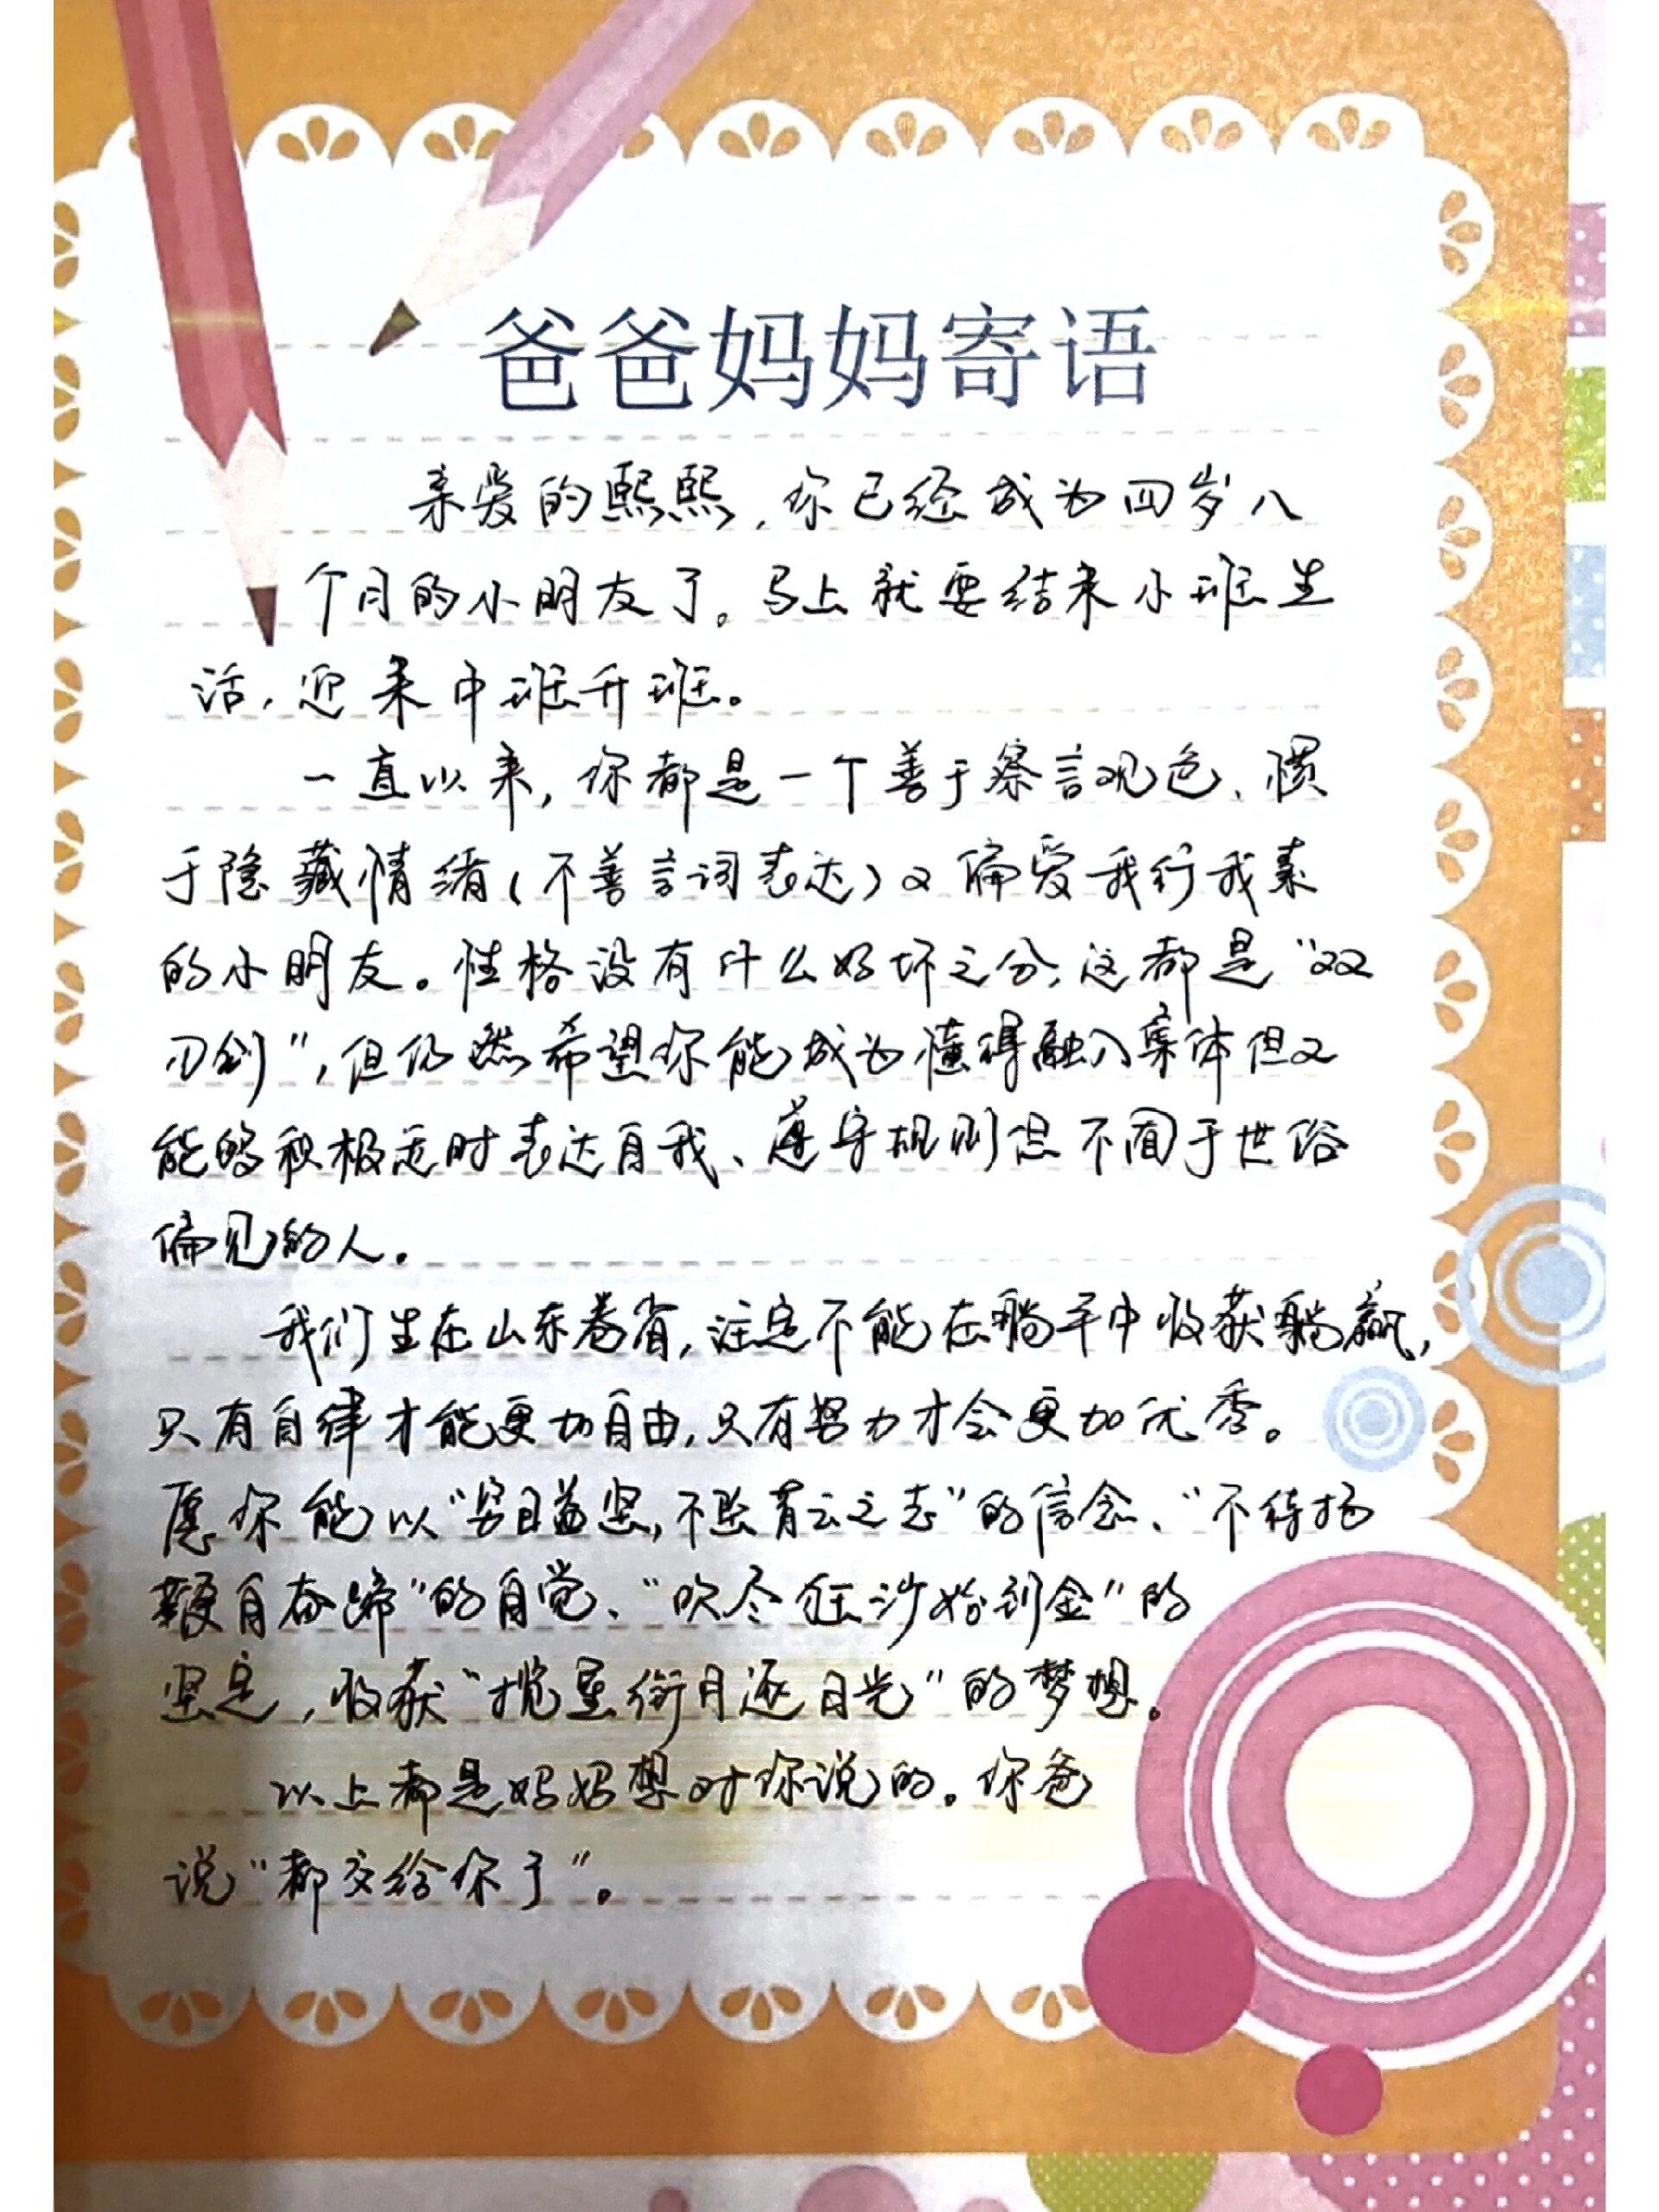 爸爸妈妈寄语
亲爱的熙熙，你已经成为四岁八
个月的小朋友了。马上就要结束小班生
活，迎来中班升班。
一直以来，你都是一个善于察言观色、惯
于隐藏情绪（不善言词表达）又偏爱我行我素
的小朋友。性格没有什么好坏之分，这都是“双
刃剑”，但仍然希望你能成为懂得融入集体但又
能够积极适时表达自我、遵守规则但不囿于世俗
偏见的人。
我们生在山东卷省，注定不能在躺平中收获躺赢，
只有自律才能更加自由，只有努力才会更加优秀。
愿你能以“穷且益坚，不坠青云之志”的信念、“不待扬
鞭自奋蹄”的自觉、“吹尽狂沙始到金”的
坚定，收获“揽星衔月逐日光”的梦想。
以上都是妈妈想对你说的。你爸
说“都交给你了”。